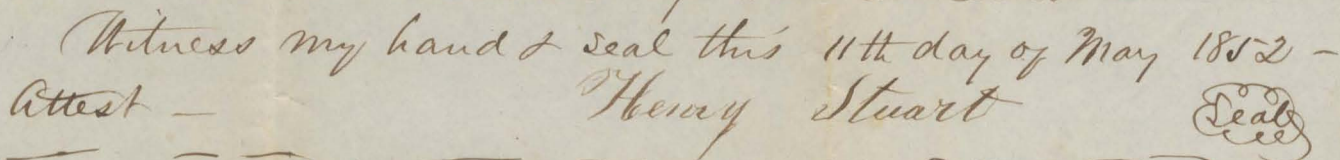 Witness my hand & seal this 11th day of May 1852 -
Attest - Henry Stuart Seal